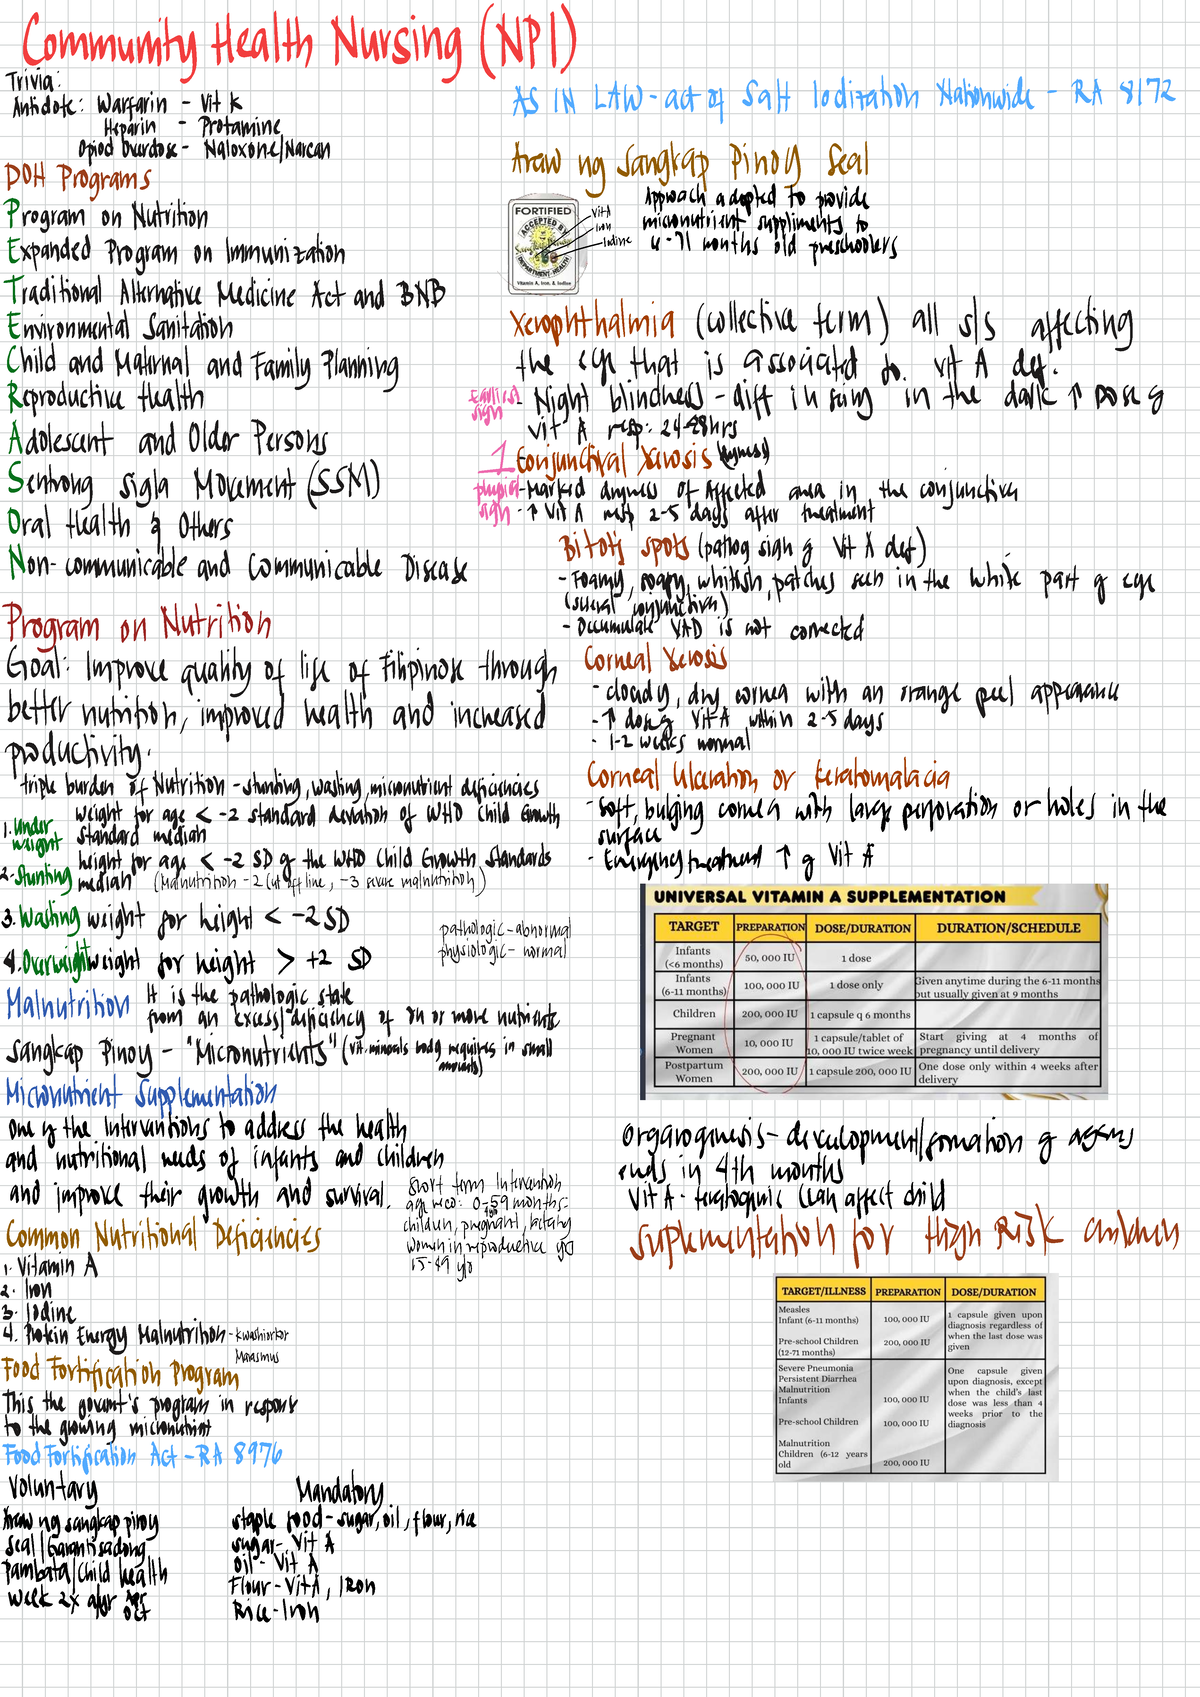 Community Health Nursing (NPI)
Trivia:
Antidote: Warfarin - Vit K
Heparin - Protamine
Opiod Overdose - Naloxone/Narcan
DOH Programs
Program on Nutrition
Expanded Program on Immunization
Traditional Alternative Medicine Act and BNB
Environmental Sanitation
Child and Maternal and Family Planning
Reproductive Health
Adolescent and Older Persons
Sentrong Sigla Movement (SSM)
Oral Health & Others
Non-communicable and Communicable Disease
Program on Nutrition
Goal: Improve quality of life of Filipinos through
better nutrition, improved health and increased
productivity.
triple burden of Nutrition - stunting, wasting, micronutrient deficiencies
1. Under weight weight for age < -2 standard deviation of WHO Child Growth
Standard median
2. Stunting height for age < -2 SD of the WHO Child Growth Standards
median (Malnutrition - 2 cut off line, -3 severe malnutrition)
3. Wasting weight for height < -2 SD
4. Overweight weight for height > +2 SD
pathologic - abnormal
physiologic - normal
Malnutrition It is the pathologic state
from an excess/deficiency of on or more nutrients
Sangkap Pinoy - "Micronutrients" (vit. minerals body requires in small
amounts)
Micronutrient Supplementation
One of the Interventions to address the health
and nutritional needs of infants and children
and improve their growth and survival.
Short term Intervention
age 0-59 months
children, pregnant, lactating
women in reproductive
15-49 y/o
Common Nutritional Deficiencies
1. Vitamin A
2. Iron
3. Iodine
4. Protein Energy Malnutrition - Kwashiorkor
Marasmus
Food Fortification Program
This the govent's program in respons
to the growing micronutrient
Food Fortification Act - RA 8976
Voluntary
Araw ng sangkap pinoy
Seal/Garantisadong
Pambata/Child health
Week 2x after Apr
Oct
Mandatory
staple food - sugar, oil, flour, rice
sugar - Vit A
Oil - Vit A
Flour - Vit A, Iron
Rice - Iron
AS IN LAW - act of Salt Iodization Nationwide - RA 8172
Araw ng Sangkap Pinoy Seal
FORTIFIED
ACCEPTED BY
DEPARTMENT HEALTH
Vitamin A, Iron, & Iodine
Vit A
Iron
Iodine
Approach adopted to provide
micronutrient suppliments to
6-71 months old preschoolers
Xerophthalmia (collective term) all s/s affecting
the eye that is associated to. vit A def.
Earliest sign
- Night blindness - diff in seeing in the dark ↑ dose of
Vit A resp: 24-48hrs
1
Conjunctival Xerosis (dryness)
sign
- Marked dryness of Affected area in the conjunctiva
- ↑ Vit A resp 2-5 days after treatment
Bitot's spots (pathog sign of Vit A def)
- Foamy, soapy, whitish, patches seen in the white part of eye
- Occumulate VAD is not corrected
Corneal Xerosis
- cloudy, dry cornea with an orange peel appearance
- ↑ dose of Vit A within 2-5 days
- 1-2 weeks normal
Corneal Ulceration or Keratomalacia
- Soft, bulging cornea with large perforation or holes in the
surface
- Emergency treatment ↑ of Vit A
UNIVERSAL VITAMIN A SUPPLEMENTATION
TARGET PREPARATION DOSE/DURATION DURATION/SCHEDULE
Infants (<6 months) 50, 000 IU 1 dose
Infants (6-11 months) 100, 000 IU 1 dose only Given anytime during the 6-11 months but usually given at 9 months
Children 200, 000 IU 1 capsule q 6 months
Pregnant Women 10, 000 IU 1 capsule/tablet of 10, 000 IU twice week Start giving at 4 months of pregnancy until delivery
Postpartum Women 200, 000 IU 1 capsule 200, 000 IU One dose only within 4 weeks after delivery
Organogenesis - development/formation of
ends in 4th months
Vit A - teratogenic (can affect child
Suplementation for High Risk Children
TARGET/ILLNESS PREPARATION DOSE/DURATION
Measles
Infant (6-11 months) 100, 000 IU
Pre-school Children (12-71 months) 200, 000 IU
1 capsule given upon diagnosis regardless of when the last dose was given
Severe Pneumonia
Persistent Diarrhea
Malnutrition
Infants 100, 000 IU
Pre-school Children 100, 000 IU
Malnutrition
Children (6-12 years old 200, 000 IU
One capsule given upon diagnosis, except when the child's last dose was less than 4 weeks prior to the diagnosis